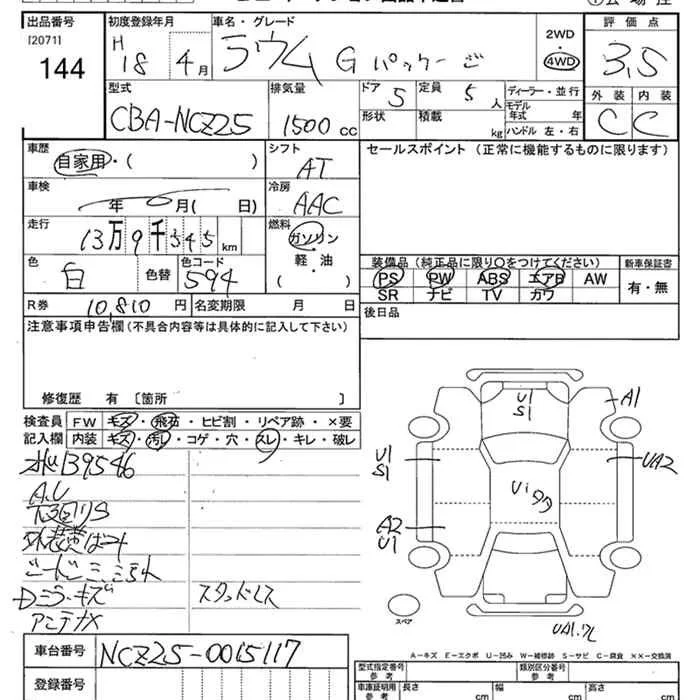 出品番号 初度登録年月 車名・グレード 2WD 評価点
[20711]
144
H 18 4月 ラウム Gパッケージ 4WD 3.5
型式 排気量 ドア 5 定員 5人 ディーラー・並行 外装 内装
CBA-NCZ25 1500cc 形状 積載 kg モデル年式 年 C C
ハンドル 左・右
車歴 シフト セールスポイント (正常に機能するものに限ります)
自家用・( ) AT
車検 冷房
年 月( 日) AAC
走行 燃料
13万9千345km ガソリン
軽・油
( )
色 色コード
白 色替 594
装備品(純正品に限り○をつけてください) 新車保証書
PS PW ABS エアB AW 有・無
SR ナビ TV カワ
R券 10,810円 名変期限 月 日 後日品
注意事項申告欄(不具合内容等は具体的に記入して下さい)
修復歴 有 〔箇所 〕
検査員 FW キズ・飛石・ヒビ割・リペア跡・×要
記入欄 内装 キズ・汚し・コゲ・穴・スレ・キレ・破レ
139546
A.U
下回りS
Dミラーキズ スタッドレス
アンテナX
U1 S1
A1
U1 S1
UA2
A2 U1
スペア
A−キズ E−エクボ U−凹み W−補修跡 S−サビ C−腐食 XX−交換済
車台番号 NCZ25-0015117
登録番号
型式指定番号 参考 類別区分番号 参考
車庫証明用 参考 長さ cm 幅 cm 高さ cm